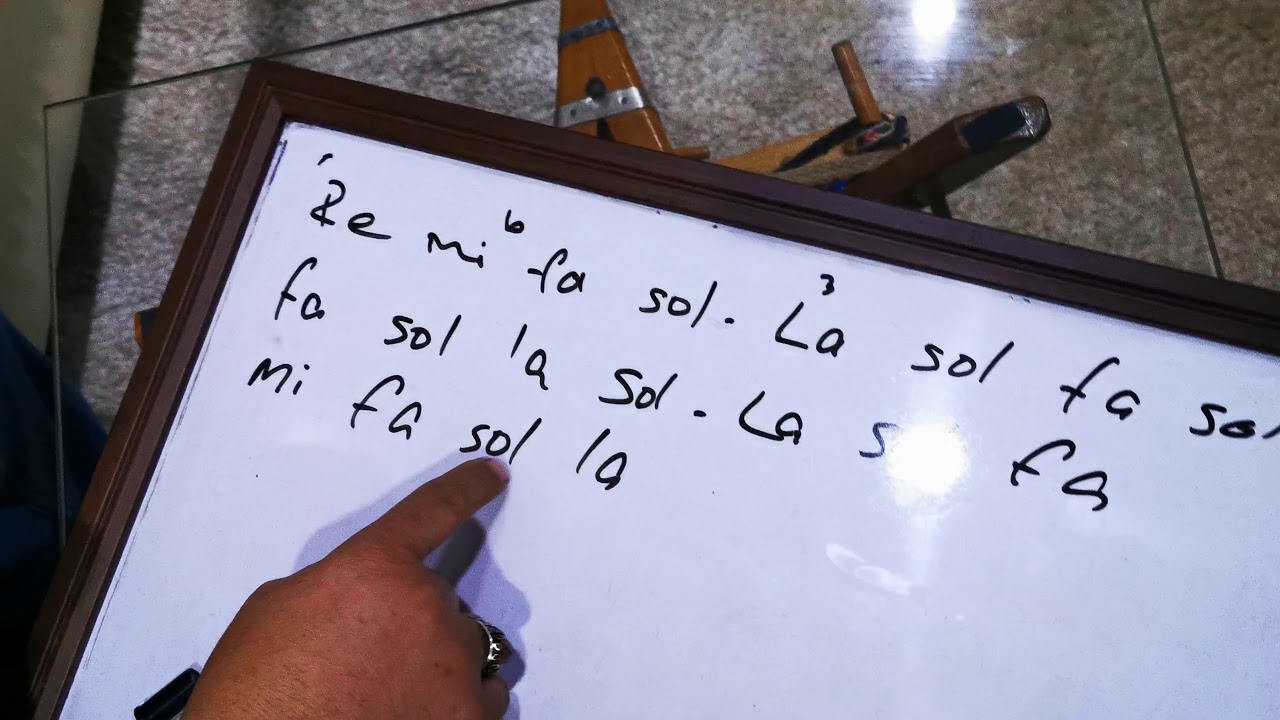 Re mi b fa sol. La 3 sol fa sol
fa sol la sol. La fa
mi fa sol la